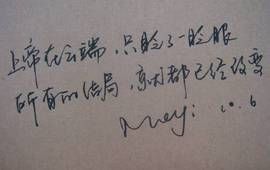 上帝在云端，只眨了一眨眼
所有的结局，哀都已经改变
10.6